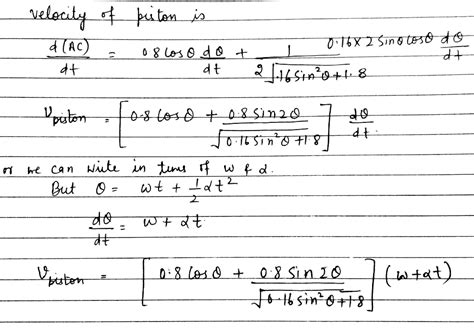 velocity of piston is
d(AC)/dt = 0.8 cosθ dθ/dt + 1/(2√(.16 sin²θ + 1.8)) 0.16 × 2 sinθ cosθ dθ/dt
V piston = [0.8 cosθ + 0.8 sin2θ/√(0.16 sin²θ + 1.8)] dθ/dt.
or we can write in terms of w & α.
But θ = wt + 1/2 αt²
dθ/dt = w + αt.
V piston = [0.8 cosθ + 0.8 sin 2θ/√(0.16 sin²θ + 1.8)] (w + αt)